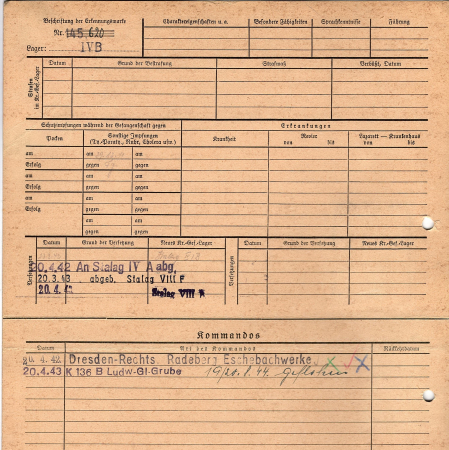 Beschriftung der Erkennungsmarke
Nr. 145 620
Lager: IVB
Charaktereigenschaften u. a.
Besondere Fähigkeiten
Sprachkenntnisse
Führung
Strafen in Kr.-Gef.-Lager
Datum
Grund der Bestrafung
Strafmaß
Verbüßt, Datum
Schutzimpfungen während der Gefangenschaft gegen
Erkrankungen
Pocken
Sonstige Impfungen
(Ty.-Paraty., Ruhr, Cholera usw.)
Krankheit
Revier
von bis
Lazarett — Krankenhaus
von bis
am am am
Erfolg gegen gegen
am am am
Erfolg gegen gegen
am am am
Erfolg gegen gegen
am am
gegen gegen
Versetzungen
Datum
Grund der Versetzung
Neues Kr.-Gef.-Lager
Versetzungen
Datum
Grund der Versetzung
Neues Kr.-Gef.-Lager
20.4.42 An Stalag IV A abg.
20.3.43 abgeb. Stalag VIII F
20.4.4 Stalag VIII B
Kommandos
Datum
Art des Kommandos
Rückkehrdatum
20. 4. 42 Dresden-Rechts. Radeberg Eschebachwerke
20.4.43 K 136 B Ludw-Gl-Grube 19/20.8.44. Geflohen